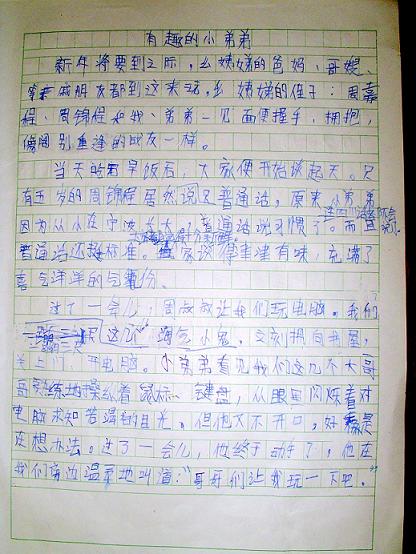 有趣的小弟弟
新年将要到之际，幺姨妹的爸妈、哥嫂、
亲戚朋友都到这来玩。幺姨妹的侄子：周嘉
程、周锦程和我、弟弟一见面便握手，拥抱，
像阔别重逢的战友一样。
当天的早饭后，大家便开始谈起天。只
有五岁的周锦程居然说的是普通话，原来小弟弟
因为从小在宁波长大，普通话说习惯了。而且
连四川话都不会说了。
普通话还挺标准。大家谈得津津有味，充满了
喜气洋洋的气氛。
过了一会儿，周叔叔让我们玩电脑。我们
这几个淘气小鬼，立刻拥向书屋，
关上门，开电脑。小弟弟看见我们这几个大哥
哥熟练地操纵着鼠标、键盘，从眼里闪烁着对
电脑求知若渴的目光。但他又不开口，好像是
在想办法。过了一会儿，他终于动手了，他在
我们旁边温柔地叫道：“哥哥们让我玩一下吧。”